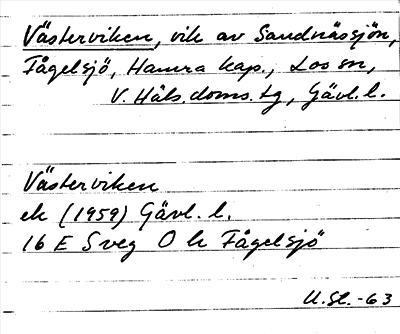 Västerviken, vik av Sandnässjön,
Fågelsjö, Hamra kap., Los sn,
V. Häls. doms. tg, Gävl. l.
Västerviken
ek (1959) Gävl. l.
16 E Sveg O k Fågelsjö
U.St. -63